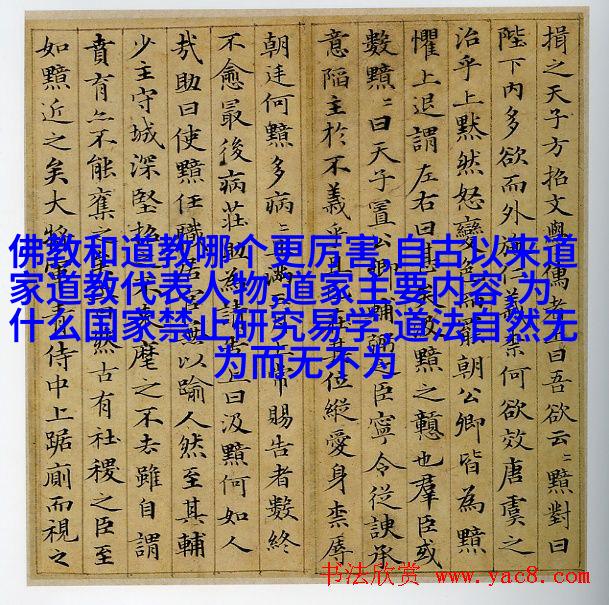 揖之天子方招文學儒者上曰吾欲云〻黯對曰
陛下内多欲而外仁義柰何欲效唐虞之
治乎上黙然怒變色罷朝公卿皆為黯
懼上退謂左右曰甚矣汲黯之戇也羣臣或
數黯〻曰天子置公卿輔弼臣寧令從諛承
意陷主於不義乎在其位縱愛身柰辱
朝廷何黯多病〻滿三上常賜告者數終
不愈最後病莊助為請告上曰汲黯何如人
㢤助曰使黯任職居官無以踰人然至其輔
少主守城深堅招之不來麾之不去雖自謂
賁育亦不能奪之然古有社稷之臣至
如黯近之矣大將軍青侍中上踞廁而視之
佛教和道教哪个更厉害,自古以来道
家道教代表人物,道家主要内容,为
什么国家禁止研究易学,道法自然无
为而无不为
书法欣赏 www.yac8.com